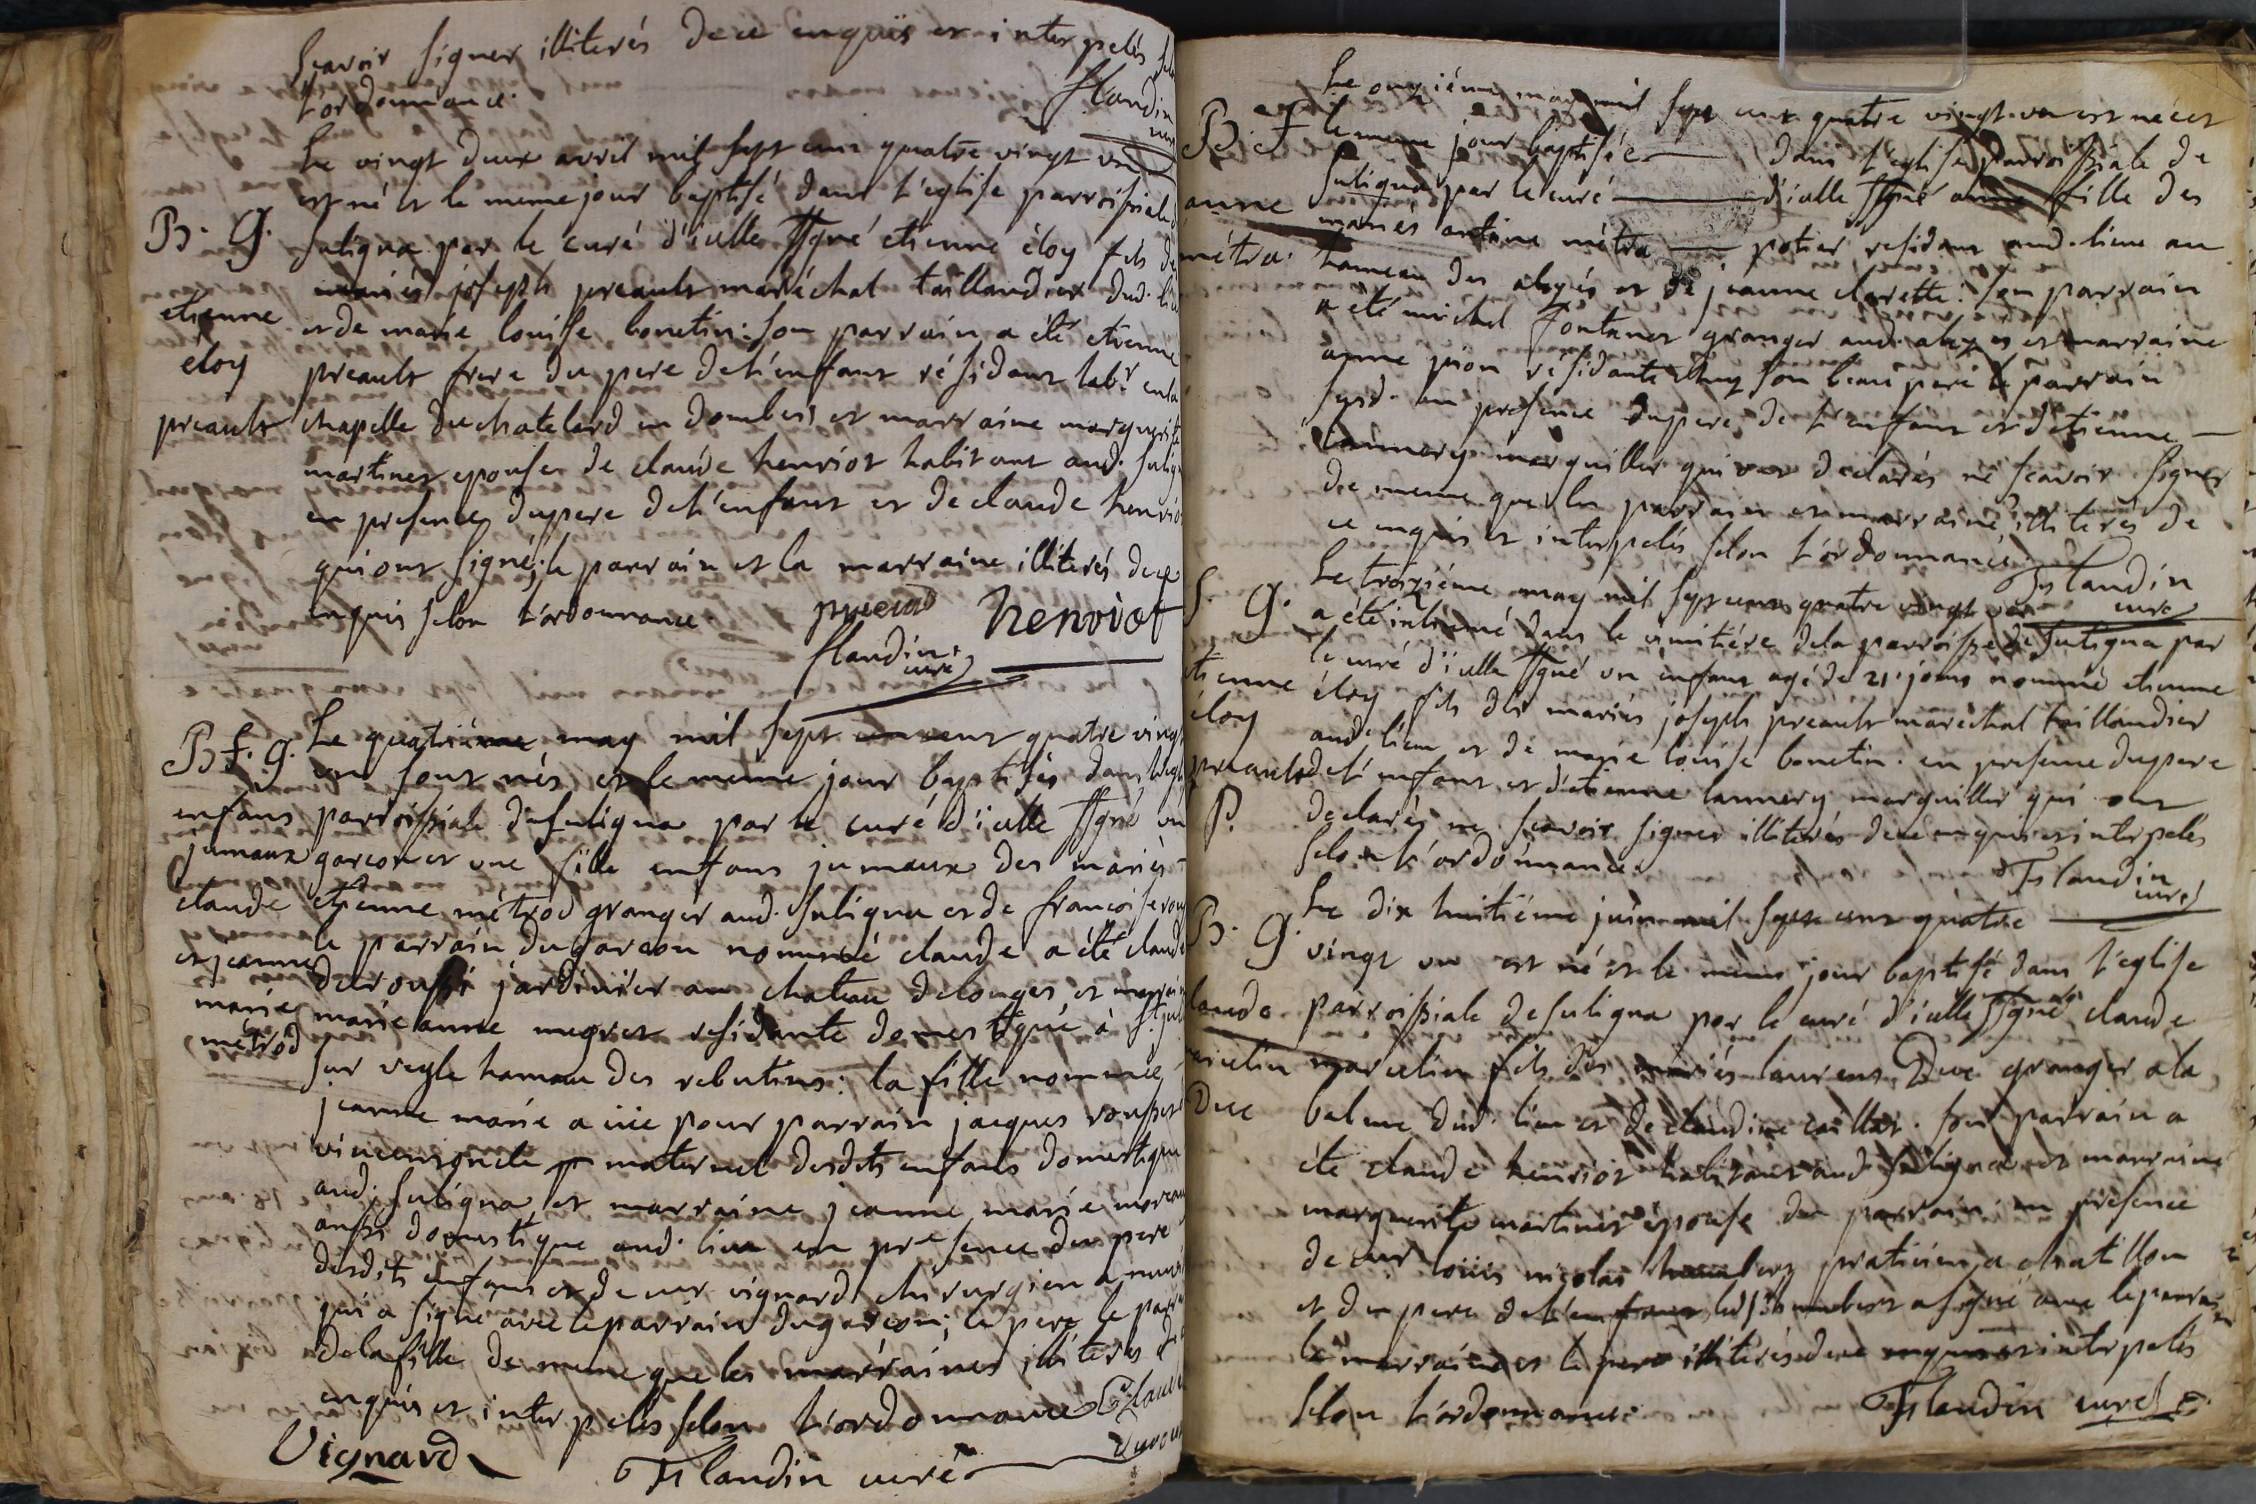 sçavoir signer illiterés de ce enquis et interpelés selon
l'ordonnance.
flandin
curé
le vingt deux avril mil sept cent quatre vingt un
est né et le meme jour baptisé dans l'eglise parroissiale de
B. G.
suligna par le curé d'icelle ssgné etienne éloy fils des
mariés joseph preault maréchal taillandier dud. lieu
etienne
et de marie louise bonetin: son parrain a été etienne
eloy
preault frere du pere de l'enfant résidant labr en la
preault
chapelle du chatelard en dombes, et marraine marguerite
martinet epouse de claude henriot habitant aud. suligna
en presence du pere de l'enfant et de claude henriot
qui ont signé, le parrain et la marraine illiterés de ce
enquis selon l'ordonnance.
preault henoiot
flandin curé
B f. g.
le quatriéme may mil sept cent quatre vingt
un sont nés et le meme jour baptisés dans l'eglise
enfans
parroissiale de suligna par le curé d'icelle ssgné un
jumaux
garcon et une fille enfans jumaux des mariés
claude
etienne métrod granger aud. suligna et de francoise
le parrain du garcon nommé claude a été claude
et jeanne
jardinier au chateau de longes et marraine
marie
marie anne megret residante domestique à st. jul
métrod
sur veyle hameau des rebutins: la fille nommée
jeanne marie a eue pour parrain jacques rousset
vincent oncle maternel desdits enfans domestique
aud. suligna et marraine jeanne marie moreau
aussi domestique aud. lieu en presence du pere
desdits enfans et de mr vignard chirurgien a
qui a signé avec le parrain du garcon; le pere le parrain
de la fille de meme que les marraines illiterés de
enquis et interpelés selon l'ordonnance
Vignard
Flandin curé
le onziéme may mil sept cent quatre vingt un est née et
B. F
le meme jour baptisée dans l'eglise parroissiale de
suligna par le curé d'icelle ssgné anne fille des
anne
mariés antoine métra potier residant aud. lieu au
métra.
hameau des aloyés et de jeanne clarette. son parrain
a été michel fontanet granger aud. aloyés et marraine
anne pion résidante chez son beau pere le parrain
susd. en presence du pere de l'enfant et d'etienne
lannery marguillier qui ont declarés ne scavoir signer
de meme que les parrain et marraine illiterés de
ce enquis et interpelés selon l'ordonnance.
Flandin
curé
S. G.
le troiziéme may mil sept cent quatre vingt un
a été inhumé dans le cimitiére de la parroisse de suligna par
le curé d'icelle ssgné un enfant agé de 21 jours nommé etienne
etienne
éloy fils des mariés joseph preault marechal taillandier
éloy
aud. lieu et de marie louise bonetin. en presence du pere
preault
de l'enfant et d'etienne lannery marguillier qui ont
P.
declarés ne scavoir signer illiterés de ce enquis et interpelés
selon l'ordonnance.
Flandin
curé
le dix huitiéme juin mil sept cent quatre
B. G.
vingt un est né et le meme jour baptisé dans l'eglise
claude
parroissiale de suligna par le curé d'icelle ssgné claude
marcelin
marcelin fils des mariés laurens Duc granger a la
Duc
balme dud. lieu et de claudine caillat. son parrain a
été claude henriot habitant aud. suligna et marraine
marguerite martinet epouse du parrain: en presence
de mr louis nicolas humbert praticien a chatillon
et du pere de l'enfant led. sr humbert a signé avec le parrain
la marraine et le pere illiterés de ce enquis et interpelés
selon l'ordonnance.
Flandin curé